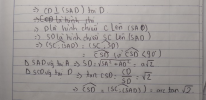 ⇒ CD ⊥ (SAD) tại D
⇒ D là hình chiếu C lên (SAD)
⇒ SD là hình chiếu SC lên (SAD)
⇒ (SC, (SAD)) = (SC, SD)
= CSD (CSD < 90°)
Δ SAD vg tại A ⇒ SD = √SA² + AD² = a√2
Δ SCD vg tại D ⇒ tan CSD = CD/SD = √2
⇒ CSD = (SC, (SAD)) = arc tan √2